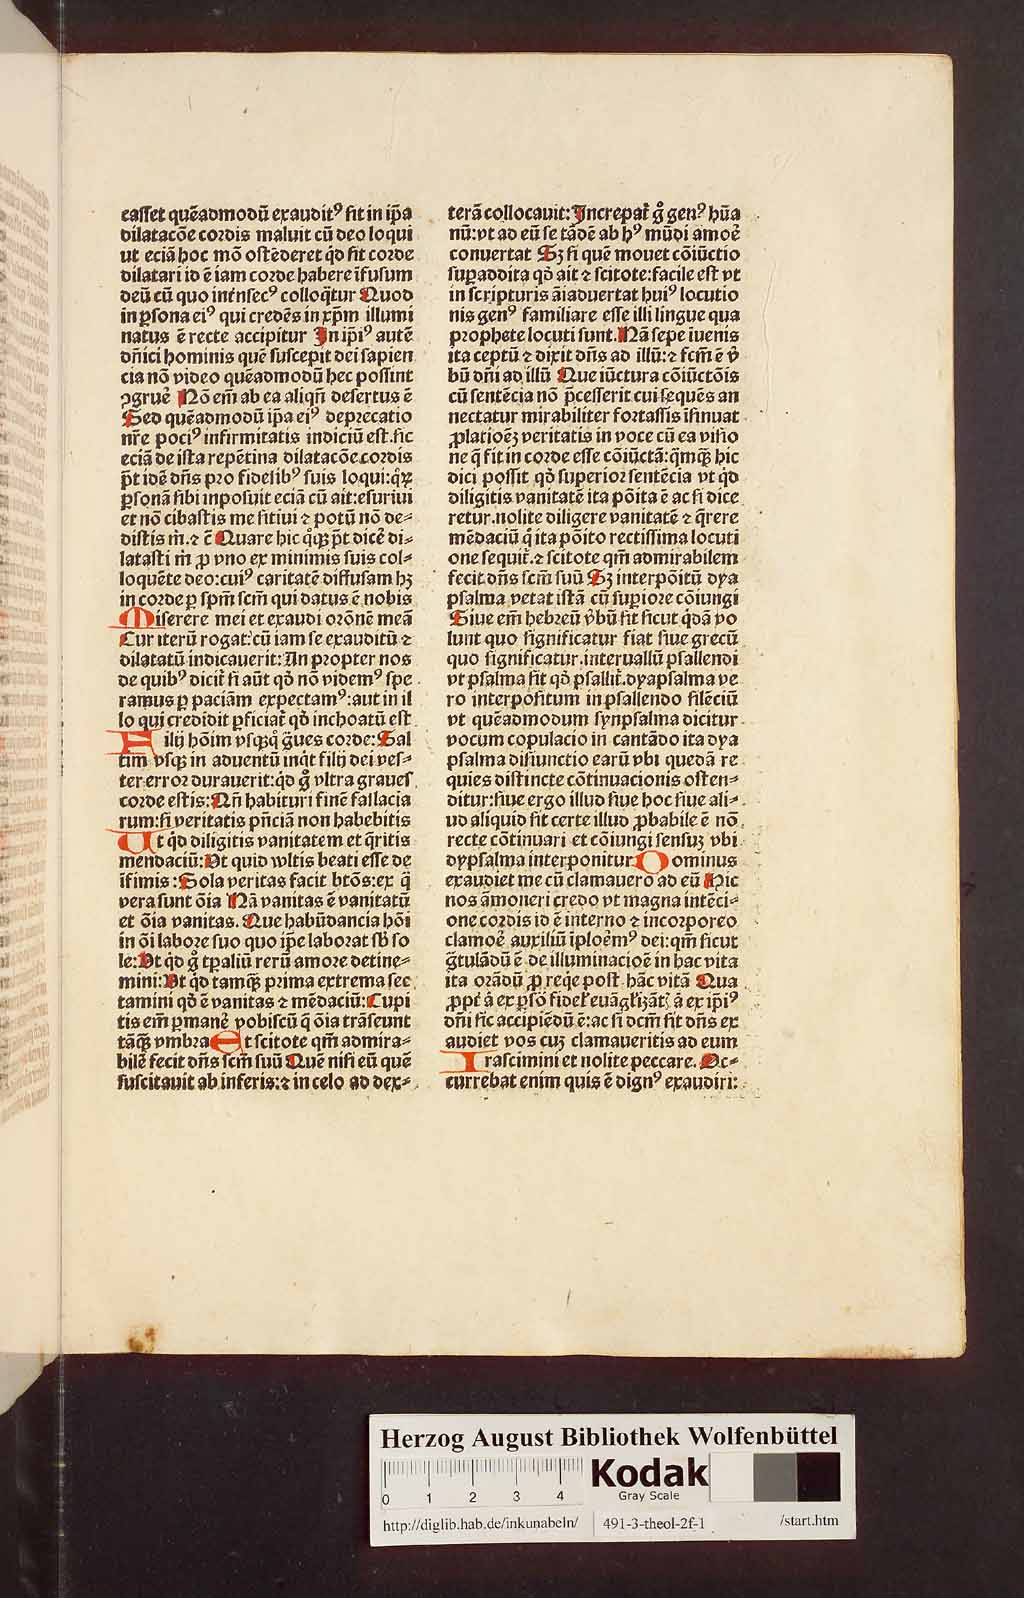 easset quēadmodū exaudit⁹ sit in ip̄a
dilatacōe cordis maluit cū deo loqui
ut eciā hoc mō ostēderet qd̄ sit corde
dilatari id ē iam corde habere īfusum
deū cū quo intrīsec⁹ colloq̄tur Quod
in ꝑsona ei⁹ qui credēs in xp̄m illumi
natus ē recte accipitur In ip̄i⁹ autē
dn̄ici hominis quē suscepit dei sapien
cia nō video quēadmodū hec possint
ꝯgruē Nō em̄ ab ea aliqn̄ desertus ē
Sed quēadmodū ip̄a ei⁹ deprecatio
nr̄e poci⁹ infirmitatis indiciū est. sic
eciā de ista repētina dilatacōe cordis
pt̄ idē dn̄s pro fidelib⁹ suis loqui: qꝝ
ꝑsonā sibi inposuit eciā cū ait: esuriui
et nō cibastis me sitiui ⁊ potū nō de⸗
distis m̄. ⁊ c̄ Quare hic q̊qꝫ pt̄ dicē di⸗
latasti m̄ ꝓ vno ex minimis suis col⸗
loquēte deo: cui⁹ caritatē diffusam hꝫ
in corde ꝑ spm̄ scm̄ qui datus ē nobis
Miserere mei et exaudi orōnē meā
Cur iterū rogat: cū iam se exauditū ⁊
dilatatū indicauerit: An propter nos
de quib⁹ dicit̄ si aūt qd̄ nō videm⁹ spe
ramus ꝑ paciām expectam⁹: aut in il
lo qui credidit ꝑficiat̄ qd̄ inchoatū est
Filij hōim vsqꝫq̊ g̈ues corde: Sal
tim vsqꝫ in aduentū inq̄t filij dei ves⸗
ter error durauerit: qd̄ g̊ vltra graues
corde estis: Qn̄ habituri finē fallacia
rum: si veritatis pn̄ciā non habebitis
Ut qd̄ diligitis vanitatem et q̄ritis
mendaciū: Vt quid vultis beati esse de
īfimis: Sola veritas facit btōs: ex q̄
vera sunt ōia Nā vanitas ē vanitatū
et ōia vanitas. Que habūdancia hōi
in ōi labore suo quo ip̄e laborat sb̄ so
le: Vt qd̄ g̊ tp̄aliū rerū amore detine⸗
mini: Vt qd̄ tamqꝫ prima extrema sec
tamini qd̄ ē vanitas ⁊ mēdaciū: Cupi
tis em̄ ꝑmanē vobiscū q̄ ōia trāseunt
tāqꝫ vmbra Et scitote qm̄ admira⸗
bilē fecit dn̄s scm̄ suū Quē nisi eū quē
suscitauit ab inferis: ⁊ in celo ad dex⸗
terā collocauit: Increpat̄ g̊ gen⁹ hūa
nū: vt ad eū se tādē ab h⁹ mūdi amoē
conuertat Sꝫ si quē mouet cōiūctio
suꝑaddita qd̄ ait ⁊ scitote: facile est vt
in scripturis āiaduertat hui⁹ locutio
nis gen⁹ familiare esse illi lingue qua
prophete locuti sunt. Nā sepe iuenis
ita ceptū ⁊ dixit dn̄s ad illū: ⁊ fcm̄ ē v̄
bū dn̄i ad illū Que iūctura cōiūctōis
cū sentēcia nō p̄cesserit cui sequēs an
nectatur mirabiliter fortassis īsinuat
ꝓlatioēꝫ veritatis in voce cū ea visio
ne q̄ fit in corde esse cōiūctā: q̄mqꝫ hic
dici possit qd̄ superior sentēcia vt qd̄
diligitis vanitatē ita pōita ē ac si dice
retur. nolite diligere vanitatē ⁊ q̄rere
mēdaciū q̊ ita pōito rectissima locuti
one sequit̄. ⁊ scitote qm̄ admirabilem
fecit dn̄s scm̄ suū Sꝫ interpōitū dya
psalma vetat istā cū suꝑiore cōiungi
Siue em̄ hebreū v̄bū sit sicut qd̄ā vo
lunt quo significatur fiat siue grecū
quo significatur. interuallū psallendi
vt psalma sit qd̄ psallit̄. dyapsalma ve
ro interpositum in psallendo silēciū
vt quēadmodum synpsalma dicitur
vocum copulacio in cantādo ita dya
psalma disiunctio earū vbi quedā re
quies distincte cōtinuacionis osten⸗
ditur: siue ergo illud siue hoc siue ali⸗
ud aliquid sit certe illud ꝓbabile ē nō
recte cōtinuari et cōiungi sensuꝫ vbi
dypsalma interponitur Dominus
exaudiet me cū clamauero ad eū Hic
nos āmoneri credo vt magna intēci⸗
one cordis id ē interno ⁊ incorporeo
clamoē auxiliū īploēm⁹ dei: qm̄ sicut
g̈tulādū ē de illuminacioē in hac vita
ita orādū ꝓ reqēe post hāc vitā Qua
ꝓpt̄ ā ex ꝑsō fideľ euāgľizāt̄ ā ex ip̄i⁹
dn̄i sic accipiēdū ē: ac si dcm̄ sit dn̄s ex
audiet vos cuꝫ clamaueritis ad eum
Irascimini et nolite peccare. Oc⸗
currebat enim quis ē dign⁹ exaudiri:
Herzog August Bibliothek Wolfenbüttel
0 1 2 3 4
Kodak
Gray Scale
http://diglib.hab.de/inkunabeln/ 491-3-theol-2f-1 /start.htm